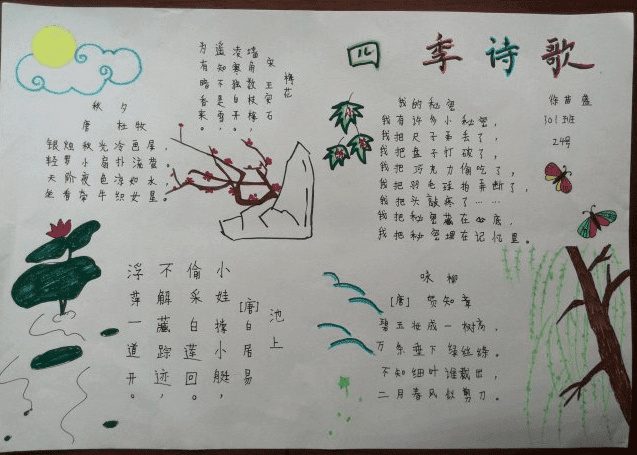 四季诗歌
徐苗盈
301班
24号
我的秘密
我有许多小秘密，
我把尺子弄丢了，
我把盘子打破了，
我把巧克力偷吃了，
我把羽毛球拍弄断了，
我把头敲疼了……
我把秘密藏在心底，
我把秘密埋在记忆里。
梅花
宋 王安石
墙角数枝梅，
凌寒独自开。
遥知不是雪，
为有暗香来。
秋夕
唐 杜牧
银烛秋光冷画屏，
轻罗小扇扑流萤。
天阶夜色凉如水，
坐看牵牛织女星。
池上
[唐]白居易
小娃撑小艇，
偷采白莲回。
不解藏踪迹，
浮萍一道开。
咏柳
[唐] 贺知章
碧玉妆成一树高，
万条垂下绿丝绦。
不知细叶谁裁出，
二月春风似剪刀。